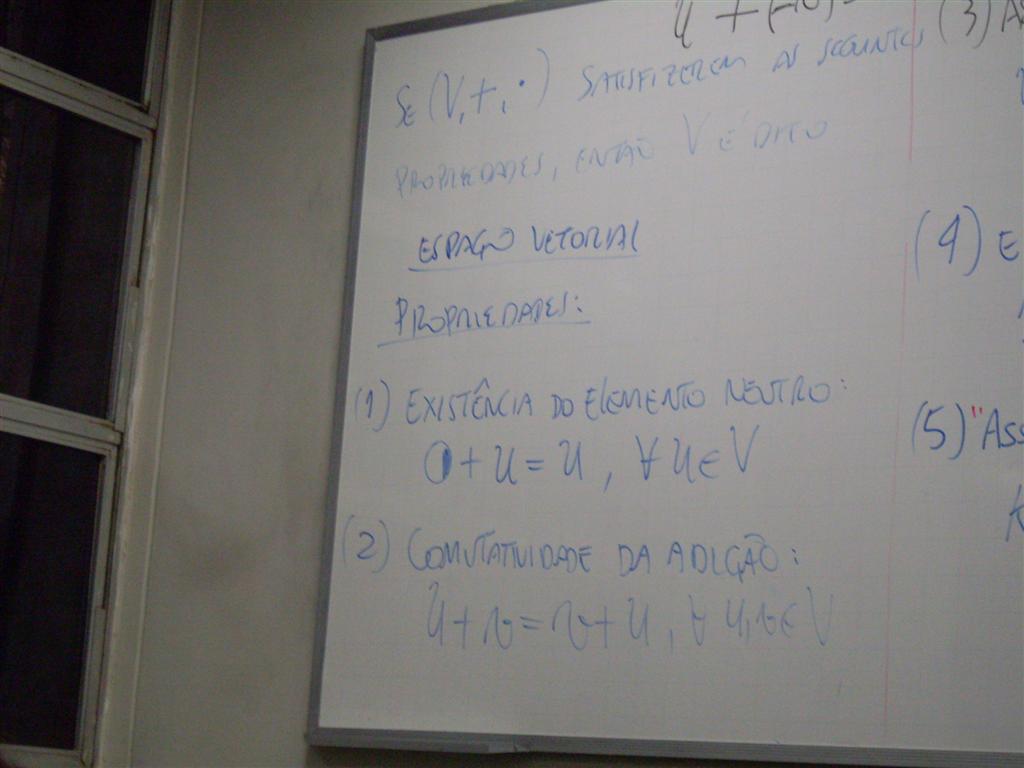 Se (V,+,·) SATISFIZEREM AS SEGUINTES
PROPRIEDADES, ENTÃO V É DITO
ESPAÇO VETORIAL
PROPRIEDADES:
(1) EXISTÊNCIA DO ELEMENTO NEUTRO:
0+u=u, ∀u∈V
(2) COMUTATIVIDADE DA ADIÇÃO:
u+v=v+u, ∀u,v∈V
u+(-u)=
(3)
(4) E
(5) "Ass